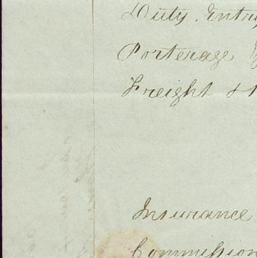 Duty. Entry
Porterage
Freight &
Insurance
Commission